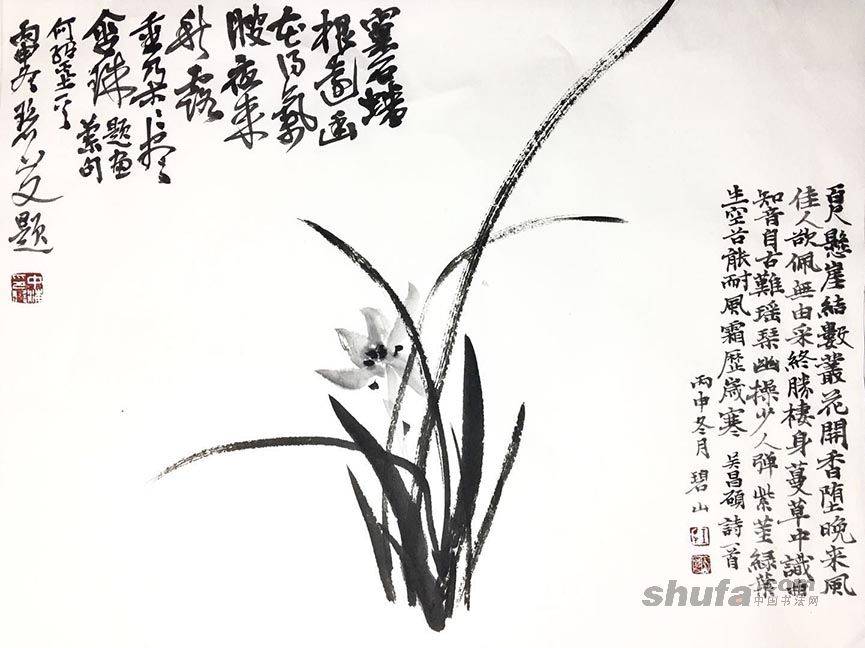 懸崖結數叢花開香墮晚來風
佳人欲佩無由采終勝棲身蔓草中識曲
知音自古難瑤琴幽操少人彈紫莖綠葉
生空谷能耐風霜歷歲寒 吴昌碩詩一首
丙申冬月碧山
石蟠
根遠
花得氣
腴夜來
秋露
重
含珠 題画
蘭句
何紹基
丙申冬碧山又題
shufa.com
中国书法网